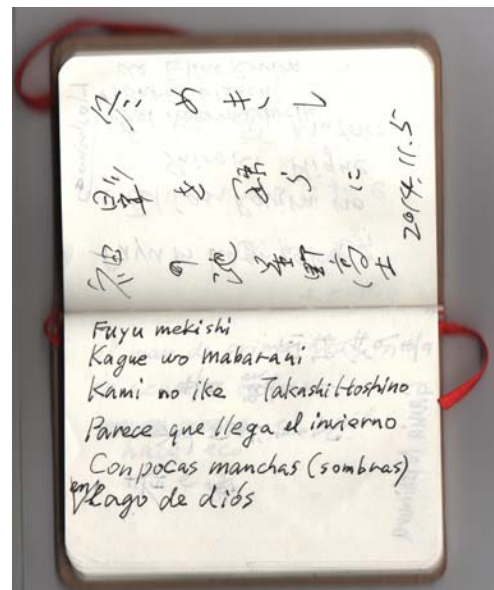 冬めきし
影を疎らに
神の池 星野高士
2014.11.5
Fuyu mekishi
Kague wo mabarani
Kami no ike Takashi Hoshino
Parece que llega el invierno
Con pocas manchas (sombras)
en Lago de diós